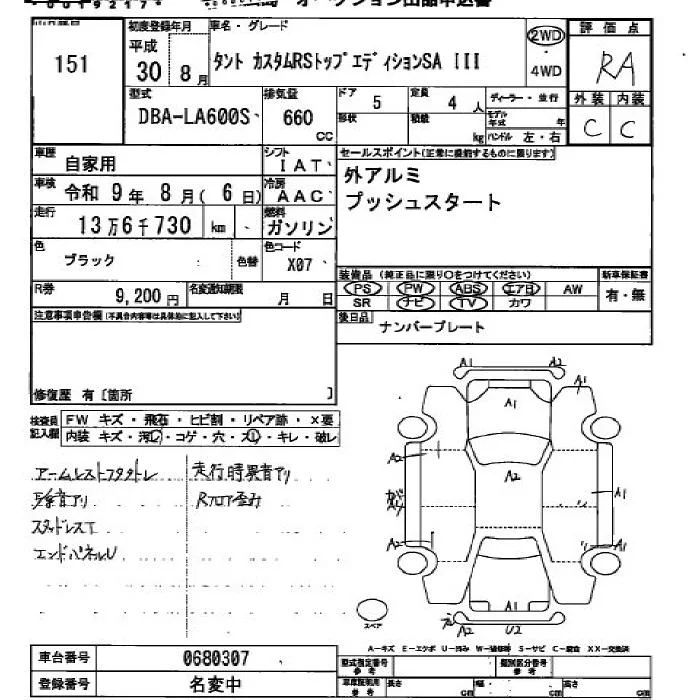 オークション出品申込書
151
初度登録年月
平成
30 8月
車名・グレード
タント カスタムRSトップエディションSA III
2WD
4WD
評価点
RA
外装 内装
C C
型式
DBA-LA600S
排気量
660
CC
ドア 5
形状
定員 4 人
積載 kg
ディーラー・並行
モデル年式 年
ハンドル 左・右
車歴 自家用
シフト
IAT
セールスポイント(正常に機能するものに限ります)
外アルミ
プッシュスタート
車検 令和 9年 8月(6日)
冷房
AAC
走行 13万6千730 km
燃料
ガソリン
色
ブラック
色替
色コード
X07
装備品(純正品に限り○をつけてください)
新車保証書
PS PW ABS エアB AW
有・無
SR ナビ TV カワ
R券
9,200円
名変通知期限
月 日
後日品 ナンバープレート
注意事項申告欄(不具合内容等は具体的に記入して下さい)
修復歴 有〔箇所 〕
検査員記入欄
FW キズ・飛石・ヒビ割・リペア跡・X要
内装 キズ・汚レ・コゲ・穴・スレ・キレ・破レ
アームレストフタタトレ
走行時異音アリ
異音アリ
Rフロア歪み
スタッドレスT
エンドパネルU
A1 A2
A1 A1
A2 A2
A1
A2 A1
A1
A2 U2
スペア
A-キズ E-エクボ U-凹み W-補修等 S-サビ C-腐食 XX-交換済
車台番号 0680307
登録番号 名変中
型式指定番号
参考
類別区分番号
参考
車庫証明用
参考
長さ cm
幅 cm
高さ cm